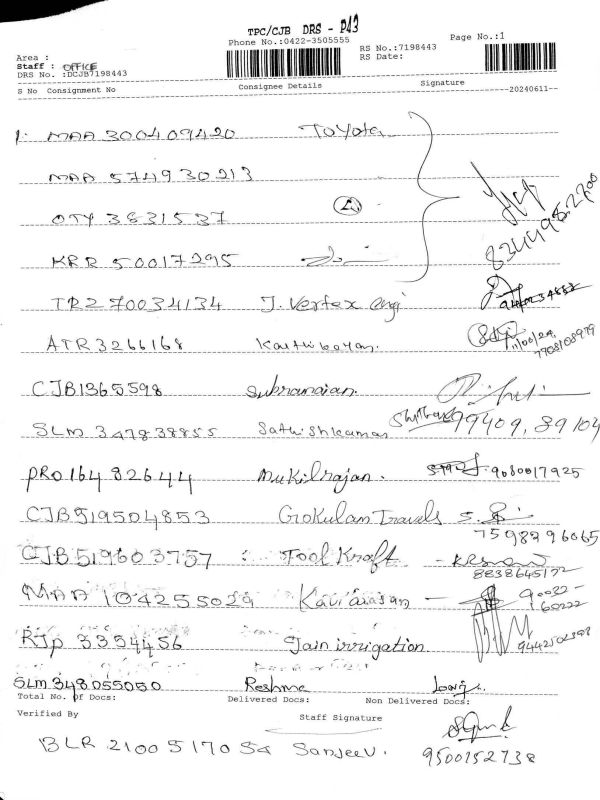 TPC/CJB DRS - P43
Phone No.:0422-3505555 Page No.:1
Area : RS No.:7198443
Staff : OFFICE RS Date:
DRS No. :DCJB7198443
S No Consignment No Consignee Details Signature
20240611
1. MAA 300409420 Toyota
MAA 574930213
OTY 3831537
KRR 50017295
834498.2200
TRZ 70034134 J. Vertex engi
ATR 3266168 Karthikeyan. 7708108979
CJB1365598 Subramanian.
SLM 347838855 Sathishkumar 99409, 89104
PRO 16482644 Mukilrajan. 9080017925
CJB519504853 Gokulam Travels 7598396065
CJB 519603757 : Tool Kraft 8838645172
MAA 104255029 Kaviarasan - 90032-60222
RJP 3354456 Jain irrigation.
SLM 348055050 Reshma
Total No. of Docs: Delivered Docs: Non Delivered Docs:
Verified By Staff Signature
BLR 2100517054 Sanjeev. 9500152738